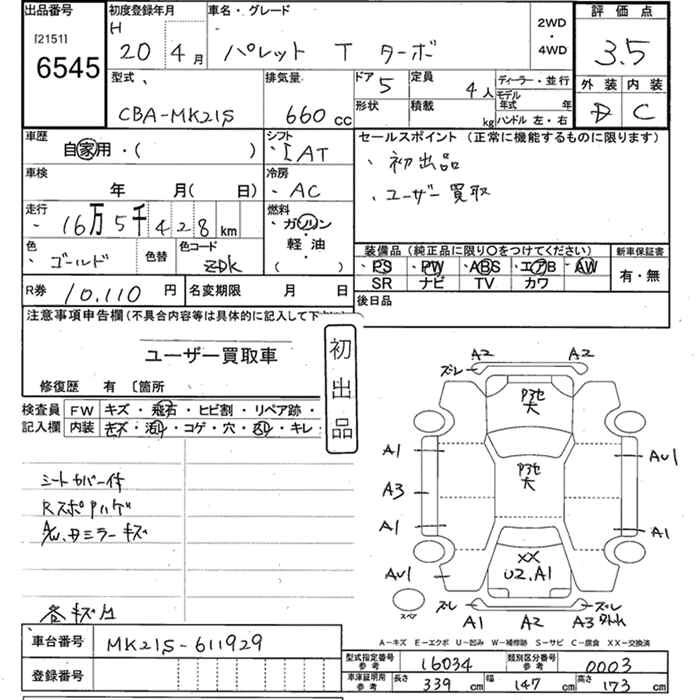 出品番号
[2151]
6545
初度登録年月
H
20 4月
車名・グレード
パレット T ターボ
2WD
・
4WD
評価点
3.5
外装 内装
D C
型式
CBA-MK21S
排気量
660 cc
ドア 5
定員 4人
ディーラー・並行
モデル
年式 年
形状
積載 kg
ハンドル 左・右
車歴
自家用・( )
シフト
IAT
セールスポイント (正常に機能するものに限ります)
初出品
ユーザー買取
車検
年 月( 日)
冷房
AC
走行
16万5千428km
燃料
ガソリン
・
軽油
( )
色
ゴールド
色替
色コード
ZDK
装備品 (純正品に限り○をつけてください)
新車保証書
PS・PW・ABS・エアB・AW
SR ナビ TV カワ
有・無
R券 10.110 円
名変期限 月 日
後日品
注意事項申告欄(不具合内容等は具体的に記入して下
ユーザー買取車
修復歴 有 〔箇所
初出品
検査員 FW キズ・飛石・ヒビ割・リペア跡・
記入欄 内装 キズ・汚れ・コゲ・穴・・キレ
シートカバー付
RスポPハゲ
A/W、ミラーキズ
A2 A2
ズレ
P3セ
大
A1
AU1
P3セ
大
A3
A1
A1
XX
U2.A1
AU1
スペア
ズレ
ズレ
A1 A2 A3
A-キズ E-エクボ U-凹み W-補修跡 S-サビ C-腐食 XX-交換済
車台番号 MK21S-611929
登録番号
型式指定番号
参考
16034
類別区分番号
参考
0003
車庫証明用
参考
長さ 339 cm
幅 147 cm
高さ 173 cm